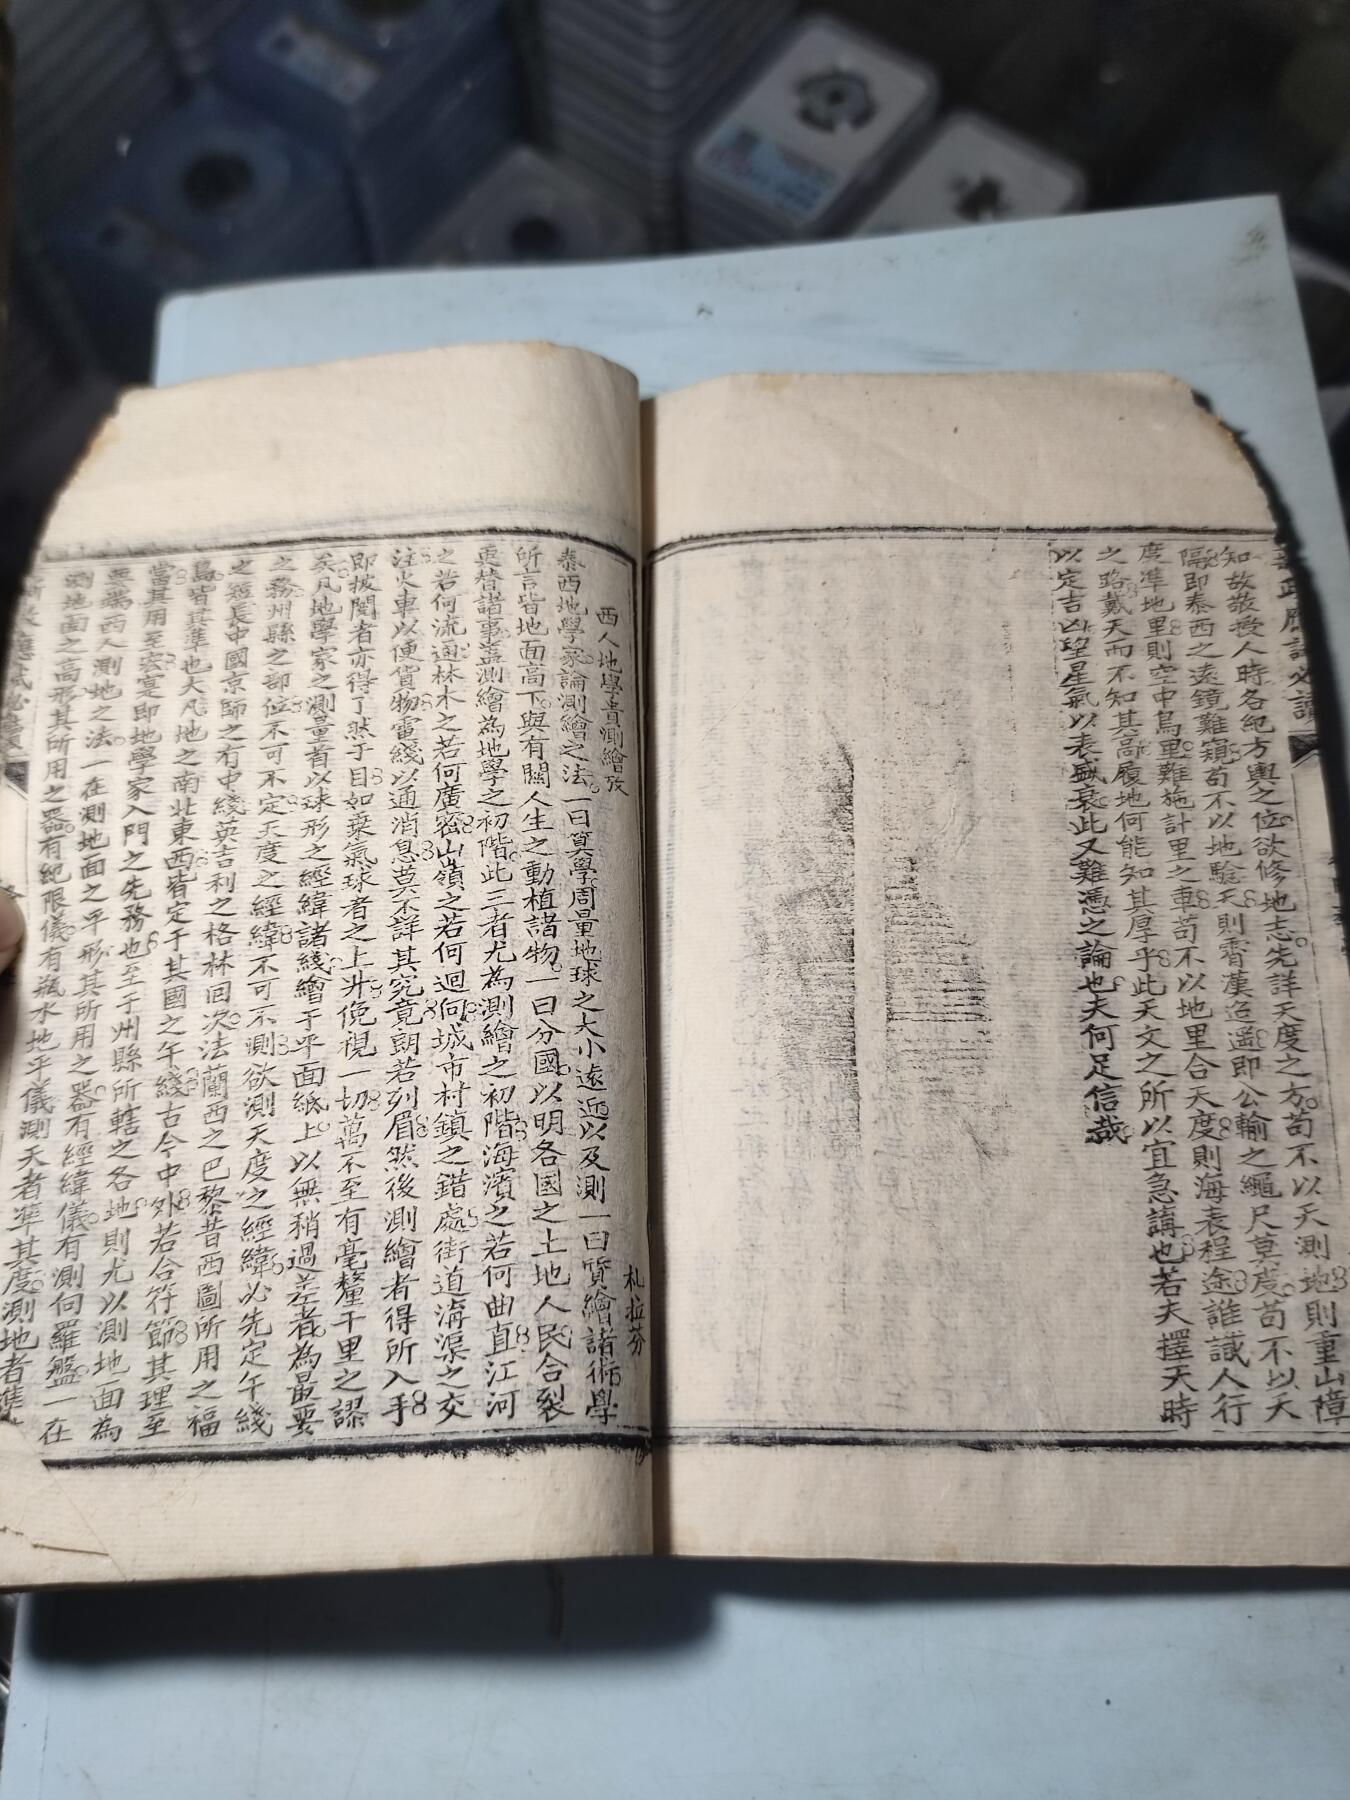 知故敬授人時各紀方輿之位欲修地志先詳天度之方苟不以天測地則重山障
隔即泰西之遠鏡難窺苟不以地驗天則霄漢迢遥即公輸之繩尺莫度苟不以天
度準地里則空中鳥里難施計里之車苟不以地里合天度則海表程途誰識人行
之路戴天而不知其高履地何能知其厚乎此天文之所以宜急講也若夫擇天時
以定吉凶望星氣以表盛衰此又難憑之論也夫何足信哉
西人地學貴測繪攷
札拉芬
泰西地學家論測繪之法一曰算學周量地球之大小遠近以及測一曰質繪諸術學
所言皆地面高下與有關人生之動植諸物一曰分國以明各國之土地人民合裂
更替諸事蓋測繪為地學之初階此三者尤為測繪之初階海濱之若何曲直江河
之若何流通林木之若何廣密山嶺之若何迴向城市村鎮之錯處街道溝渠之交
注火車以便貨物電綫以通消息莫不詳其究竟朗若列眉然後測繪者得所入手
即披閱者亦得了然于目如乗氣球者之上升俛視一切萬不至有毫釐千里之謬
矣凡地學家之測量首以球形之經緯諸綫繪于平面紙上以無稍過差者為最要
之務州縣之部位不可不定天度之經緯不可不測欲測天度之經緯必先定午綫
之短長中國京師之有中綫英吉利之格林回次法蘭西之巴黎昔西圖所用之福
島皆其準也大凡地之南北東西皆定于其國之午綫古今中外若合符節其理至
當其用至宏寔即地學家入門之先務也至于州縣所轄之各地則尤以測地面為
無端西人測地之法一在測地面之平形其所用之器有經緯儀有測向羅盤一在
測地面之高形其所用之器有紀限儀有瓶水地平儀測天者準其度測地者準